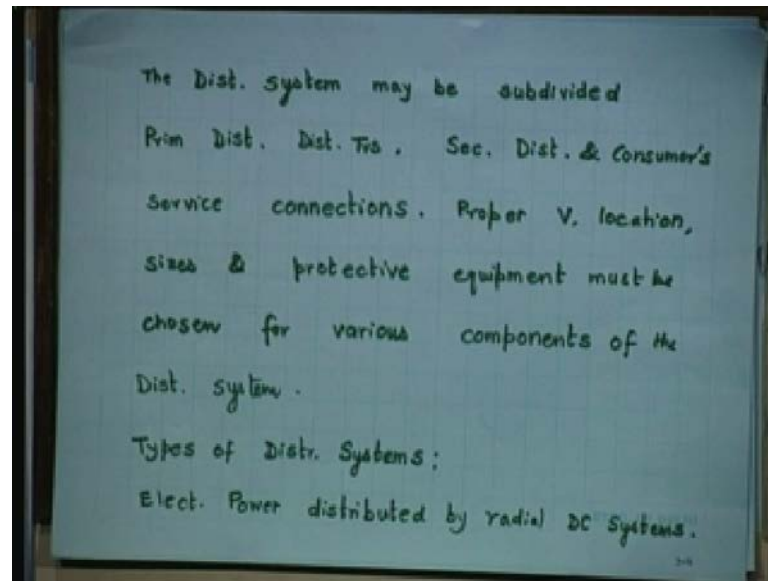 The Dist. system may be subdivided
Prim Dist. Dist. Trs. Sec. Dist. & Consumer's
Service connections. Proper V. location,
sizes & protective equipment must be
chosen for various components of the
Dist. system.
Types of Distr. Systems:
Elect. Power distributed by radial DC Systems.